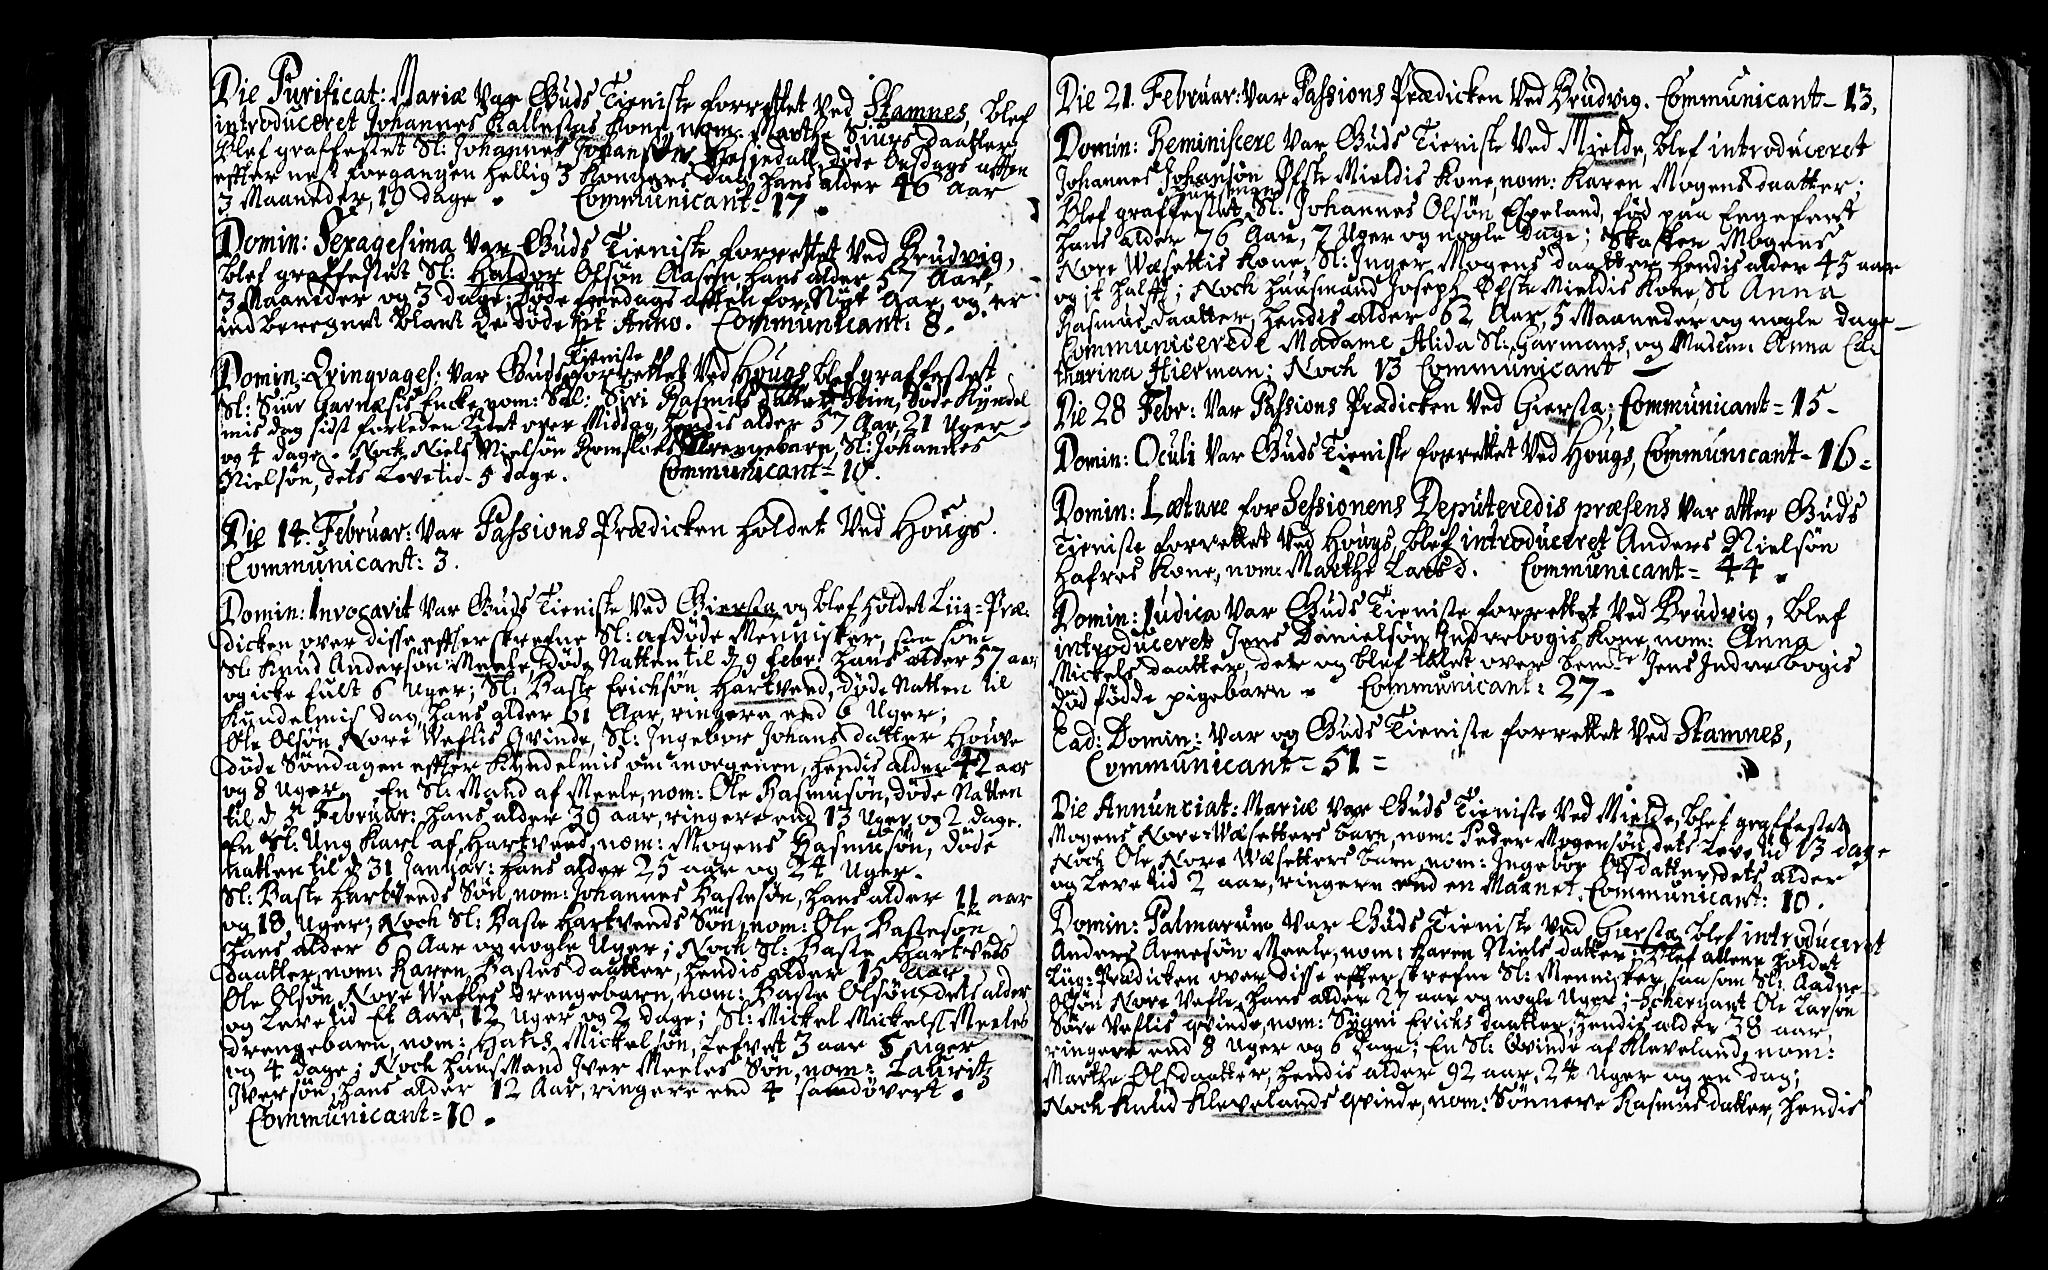 Die Purificat: Mariæ var Guds Tieniste forrettet ved Stamnes, blef
introduceret Johannes Kallestas kone, nom: Marthe Siurs daatter
blef graffestet Sl: Johannes Johansøn Hesjedall, døde Onsdags afften
effter nest forgangen hellig 3 Kongers dag, hans alder 46 Aar
3 Maaneder, 19 dage. Communicant= 17.
Domin: Sexagesima var Guds Tieniste forrettet ved Brudvig,
blef graffestet Sl: Haldor Olsøn Aasen, hans alder 57 Aar,
3 Maaneder og 3 dage; døde fredags afften for Nyt Aar, og er
indberegnet blant de døde sist Anno. Communicant: 8.
Domin: Qvinqvages: var Guds Tieniste forrettet ved Hougs blef graffestet
Sl: Siur Garnæsis Encke, nom: Sal: Siri Rasmus daatter Trim, døde Kyndel
mis dag sidst forleden lidet over Middag, hendis alder 57 Aar, 21 Uger
og 4 dage. Noch Niels Nielsøn Romsloes drengebarn, Sl: Johannes
Nielsøn, dets Levetid 5 dage. Communicant= 10.
Die 14 Februar: var Passions Prædicken holdet ved Hougs.
Communicant: 3.
Domin: Invocavit var Guds Tieniste ved Giersta, og blef holdet Liig=Præ-
dicken over disse effterskrefne Sl: afdøde Mennisker, saa som
Sl: Knud Andersøn Meele, døde Natten til d 9 febr: hans alder 57 aar
og icke fult 6 Uger; Sl: Baste Erichsøn Hartveed, døde Natten til
Kyndelmis dag, hans alder 61 Aar, ringere end 6 Uger;
Ole Olsøn Nore Veflis Qvinde, Sl: Ingebor Johans datter Houve
døde Søndagen effter Kyndelmis om morgenen, hendis alder 42 aar
og 8 Uger. En Sl: Mand af Meele, nom: Ole Rasmusøn, døde Natten
til d 3 Februar: hans alder 39 aar, ringere end 13 Uger og 2 dage.
En Sl: Ung Karl af Hartveed, nom: Mogens Rasmusøn, døde
natten til d 31 Januar: hans alder 25 aar og 24 Uger.
Sl: Baste Hartveeds Søn, nom: Johannes Bastesøn, hans alder 11 aar
og 18 Uger; Noch Sl: Baste Hartveeds Søn, nom: Ole Bastesøn
hans alder 6 Aar og nogle Uger; Noch Sl: Baste Hartveds
daatter, nom: Karen Bastes daatter, hendis alder 15 Aar,
Ole Olsøn Nore Vefles drengebarn, nom: Baste Olsøn, dets alder
og Levetid Et Aar, 12 Uger og 2 dage; Sl: Mickel Mickels: Meeles
drengebarn, nom: Hans Mickelsøn, Lefvet 3 aar 5 Uger
og 4 dage; Noch huusMand Iver Meeles Søn, nom: Lauritz
Iversøn, hans alder 12 Aar, ringere end 4
Communicant= 10.
Die 21 Februar: var Passions Prædicken ved Brudvig. Communicant= 13.
Domin: Reminiscere var Guds Tieniste ved Mielde, blef introduceret
Johannes Johansøn Øfste Mieldis Kone, nom: Karen Mogens daatter;
Blef graffestet huusmand Sl: Johannes Olsøn Espeland, fød paa Engeseet
hans alder 76 Aar, 7 Uger og nogle dage; Skaffer Mogens
Nore Wæsettis kone, Sl: Inger Mogens daatter hendis alder 45 aar
og it halft; Noch huusmand Joseph Øfste Mieldis kone, Sl: Anna
Rasmus daatter, hendis alder 62 Aar, 5 Maaneder og nogle dage
Communicerede Madame Alida Sl: Garmans, og Madem: Anna Ca
tharina Hierman; Noch 13 Communicant
Die 28 Febr: var Passions Prædicken ved Giersta; Communicant= 15.
Domin: Oculi var Guds Tieniste forrettet ved Hougs, Communicant= 16.
Domin: Lætare for Sessionens Deputeredis præsens var atter Guds
Tieniste forrettet ved Hougs, blef introduceret Anders Nielsøn
Hafres kone, nom: Marthe Lars d. Communicant= 44.
Domin: Judica var Guds Tieniste forrettet ved Brudvig, blef
introduceret Jens Danielsøn Indrebogis kone, nom: Anna
Mickels daatter, der og blef talet over bemte Jens Indrebogis
død fødde pigebarn. Communicant: 27.
Ead: Domin: var og Guds Tieniste forrettet ved Stamnes,
Communicant= 51=
Die Annunciat: Mariæ var Guds Tieniste ved Mielde, blef graffestet
Mogens Nore Wæsetters barn, nom: Peder Mogensøn, dets Levetid 13 dage
Noch Ole Nore Wæsetters barn, nom: Ingebor Ols datter, dets alder
og Levetid 2 aar, ringere end en Maanet. Communicant: 10.
Domin: Palmarum var Guds Tieniste ved Giersta, blef introduceret
Anders Arnesøn Meele, nom: Karen Niels datter; blef attene holdet
Liig=Prædicken over disse effterskrefne Sl: Mennisker, saa som Sl: Aadne
Olsøn Nore Vefle, hans alder 27 aar og nogle Uger; Schergant Ole Larsøn
Søre Veflis qvinde, nom: Sygni Erichs daatter, hendis alder 38 aar,
ringere end 8 Uger og 6 dage; En Sl: Qvinde af Kleveland, nom:
Marthe Olsdaatter, hendis alder 92 aar, 24 Uger og en dag;
Noch Knud Klevelands qvinde, nom: Sønneve Rasmus datter, hendis